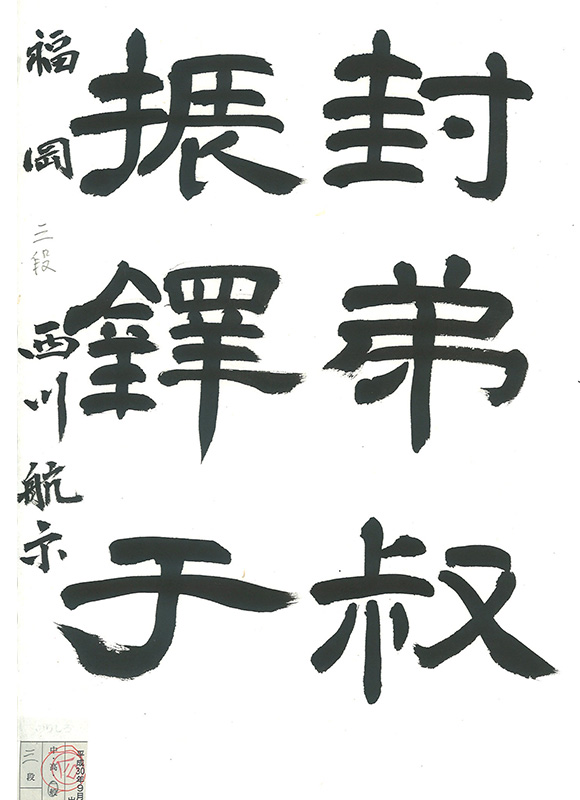 封弟叔
振鐸于
福岡 三段 西川 航示
平成30年9月
中・高
三段